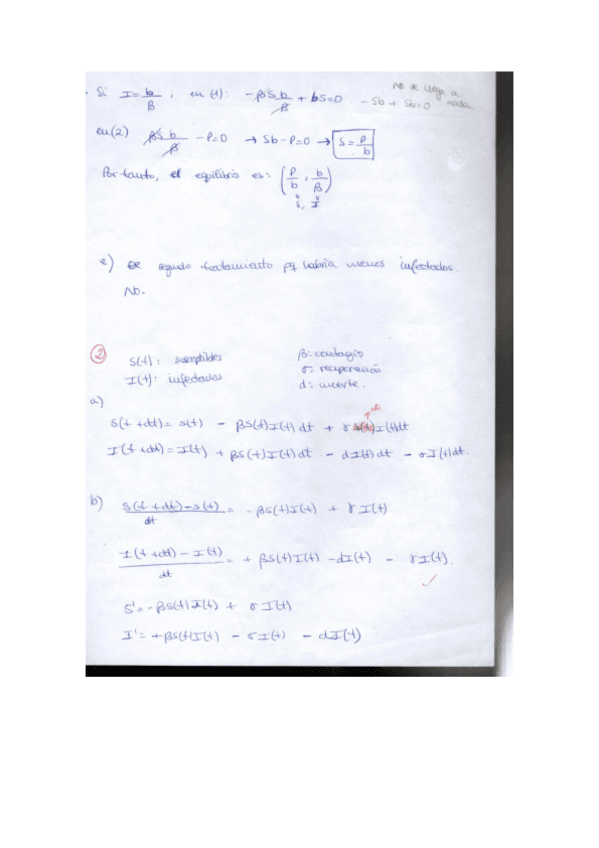 . Si I = b/β , en (1): -βS b/β + bS=0 -Sb + Sb=0 No se llega a nada
en (2) βS b/β - P=0 → Sb-P=0 → S = P/b
Por tanto, el equilibrio es: (P/b , b/β)
S, I
e) segundo tratamiento pq habría menos infectados.
No.
② S(t): susceptibles β: contagio
I(t): infectados σ: recuperación
d: muerte.
a)
S(t+dt) = S(t) - βS(t)I(t)dt + σ I(t)dt
NO
I(t+dt) = I(t) + βS(t)I(t)dt - dI(t)dt - σI(t)dt.
b) S(t+dt)-S(t)/dt = -βS(t)I(t) + σI(t)
I(t+dt)-I(t)/dt = +βS(t)I(t) -dI(t) - σI(t).
S'=-βS(t)I(t) + σI(t)
I'=+βS(t)I(t) - σI(t) - dI(t)